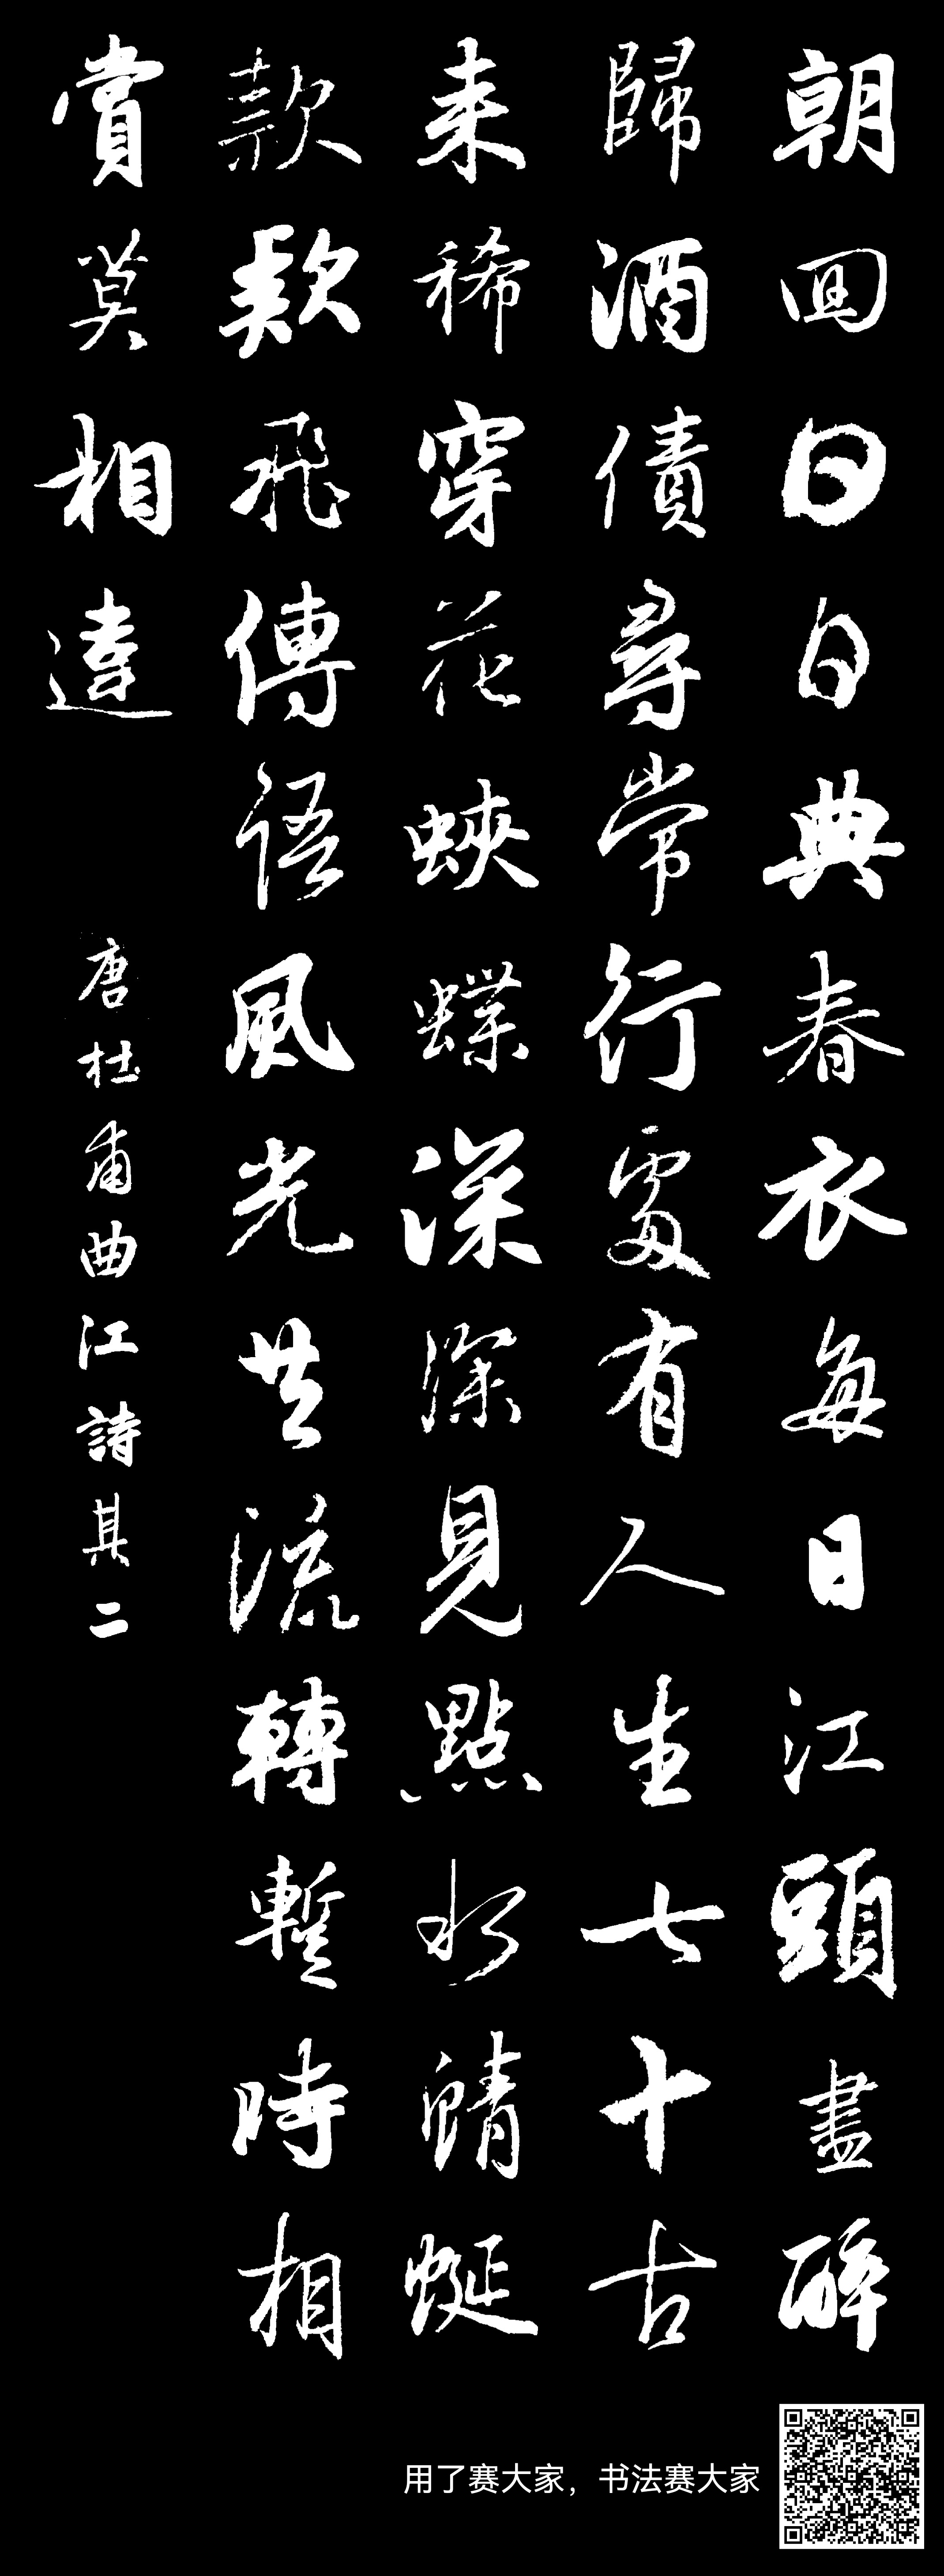 朝回日日典春衣每日江頭盡醉
歸酒債尋常行處有人生七十古
来稀穿花蛺蝶深深見點水蜻蜓
款款飛傳語風光共流轉暫時相
賞莫相違
唐杜甫曲江詩其二
用了赛大家，书法赛大家